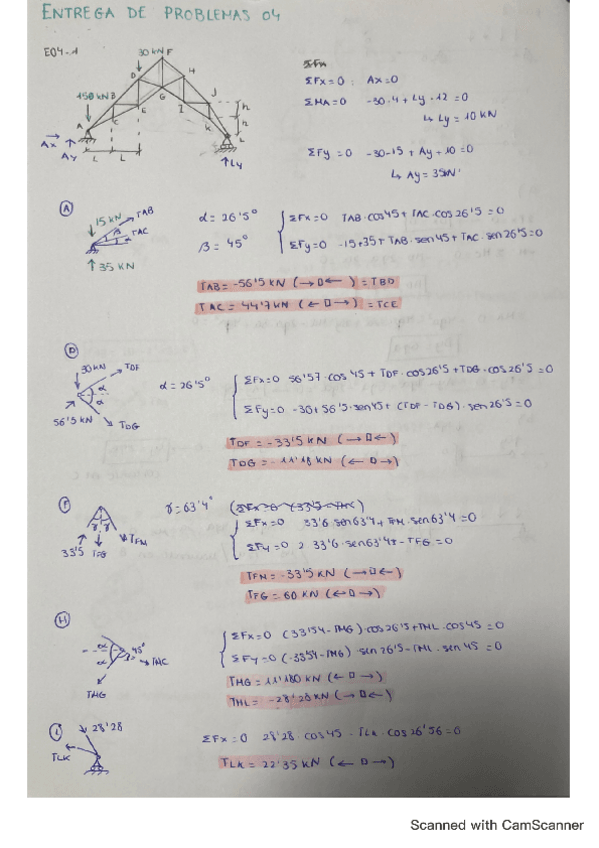 ENTREGA DE PROBLEMAS 04
E04-1
30 kN F
ΣFx=0 : Ax=0
ΣMA=0 -30·4 + Ly·12 = 0
↳ Ly = 10 kN
ΣFy = 0 -30-15 + Ay + 10 = 0
↳ Ay = 35kN
D H
150 kN B
G
E I J
C K
A
h
h
Ax
Ay
L L
Ly
A
15 kN
TAB
β TAC
35 KN
α = 26'5°
β = 45°
ΣFx=0 TAB·cos45 + TAC·cos26'5 = 0
ΣFy=0 -15+35+TAB·sen45+TAC·sen26'5=0
TAB = -56'5 KN (→□←) = TBD
TAC = 44'7 KN (←□→) = TCE
D
30 KN
TDF
α
α
56'5 KN
TDG
α = 26'5°
ΣFx=0 56'57·cos45 + TDF·cos26'5 + TDG·cos26'5 = 0
ΣFy=0 -30+56'5·sen45 + (TDF-TDG)·sen26'5=0
TDF = -33'5 KN (→□←)
TDG = -11'18 KN (←□→)
F
γ γ
TFM
33'5 TFG
γ = 63'4°
ΣFx=0 33'6·sen63'4 + TFM·sen63'4 = 0
ΣFy=0 2 33'6·sen63'4 - TFG = 0
TFM = -33'5 KN (→□←)
TFG = 60 KN (←□→)
H
α
α
45°
THG
ΣFx=0 (33'54-THG)·cos26'5+THL·cos45 = 0
ΣFy=0 (-33'54-THG)·sen26'5-THL·sen45 = 0
THG = 11'180 KN (←□→)
THL = -28'28 KN (→□←)
L
28'28
TLK
ΣFx=0 28'28·cos45 - TLK·cos26'56=0
TLK = 22'35 KN (←□→)
Scanned with CamScanner